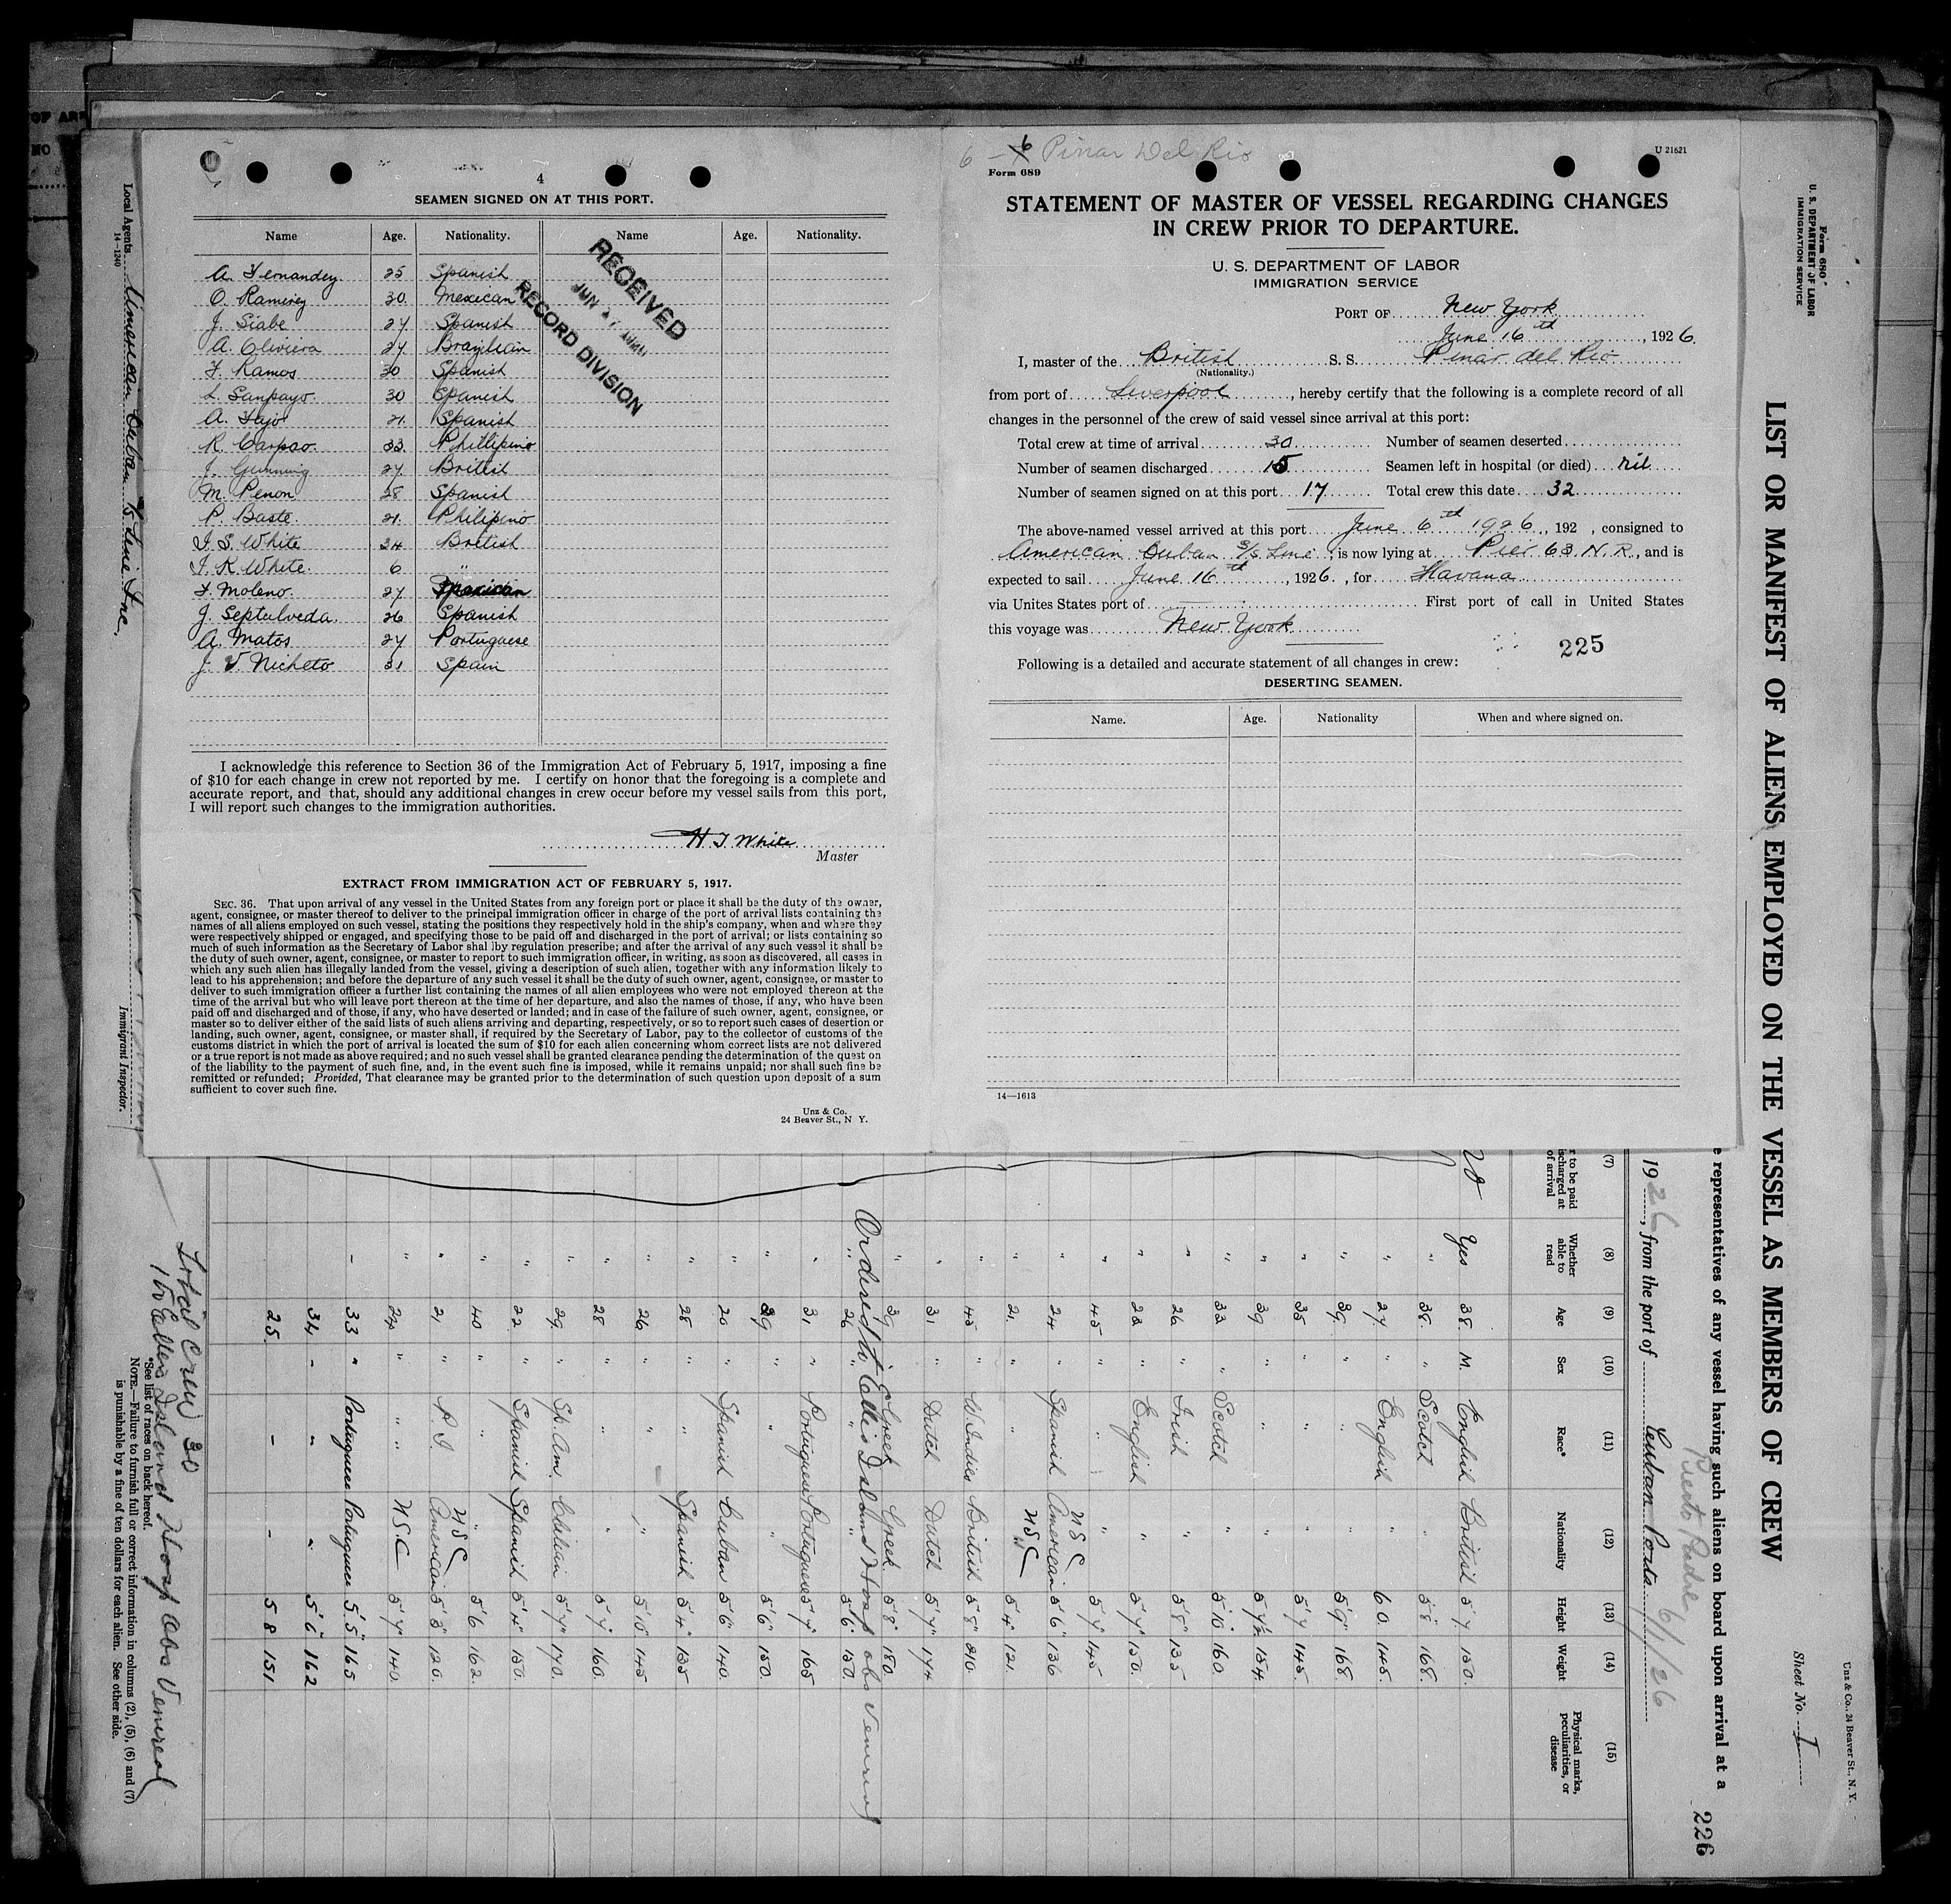 4
SEAMEN SIGNED ON AT THIS PORT.
Name Age. Nationality. Name Age. Nationality.
A. Fernandez 25 Spanish
O. Ramirez 30 Mexican
J. Siabe 27 Spanish
A. Oliviera 27 Brazilian
F. Ramos 30 Spanish
L. Sanpayo 30 Spanish
A. Fajo 21 Spanish
R. Carpao 33 Phillipino
J. Gumming 27 British
M. Penon 28 Spanish
P. Baste 21 Philipino
I. S. White 34 British
I. K. White 6 "
F. Moleno 27 Mexican
J. Septulveda 26 Spanish
A. Matos 27 Portuguese
J. V. Nicheto 31 Spain
RECEIVED
JUN 17
RECORD DIVISION
I acknowledge this reference to Section 36 of the Immigration Act of February 5, 1917, imposing a fine
of $10 for each change in crew not reported by me. I certify on honor that the foregoing is a complete and
accurate report, and that, should any additional changes in crew occur before my vessel sails from this port,
I will report such changes to the immigration authorities.
H J White
Master
EXTRACT FROM IMMIGRATION ACT OF FEBRUARY 5, 1917.
SEC. 36. That upon arrival of any vessel in the United States from any foreign port or place it shall be the duty of the owner,
agent, consignee, or master thereof to deliver to the principal immigration officer in charge of the port of arrival lists containing the
names of all aliens employed on such vessel, stating the positions they respectively hold in the ship's company, when and where they
were respectively shipped or engaged, and specifying those to be paid off and discharged in the port of arrival; or lists containing so
much of such information as the Secretary of Labor shal lby regulation prescribe; and after the arrival of any such vessel it shall be
the duty of such owner, agent, consignee, or master to report to such immigration officer, in writing, as soon as discovered, all cases in
which any such alien has illegally landed from the vessel, giving a description of such alien, together with any information likely to
lead to his apprehension; and before the departure of any such vessel it shall be the duty of such owner, agent, consignee, or master to
deliver to such immigration officer a further list containing the names of all alien employees who were not employed thereon at the
time of the arrival but who will leave port thereon at the time of her departure, and also the names of those, if any, who have been
paid off and discharged and of those, if any, who have deserted or landed; and in case of the failure of such owner, agent, consignee, or
master so to deliver either of the said lists of such aliens arriving and departing, respectively, or so to report such cases of desertion or
landing, such owner, agent, consignee, or master shall, if required by the Secretary of Labor, pay to the collector of customs of the
customs district in which the port of arrival is located the sum of $10 for each alien concerning whom correct lists are not delivered
or a true report is not made as above required; and no such vessel shall be granted clearance pending the determination of the quest on
of the liability to the payment of such fine, and, in the event such fine is imposed, while it remains unpaid; nor shall such fine be
remitted or refunded; Provided, That clearance may be granted prior to the determination of such question upon deposit of a sum
sufficient to cover such fine.
Unz & Co.
24 Beaver St., N Y.
6 - 6 Pinar Del Rio
U 21621
Form 689
STATEMENT OF MASTER OF VESSEL REGARDING CHANGES
IN CREW PRIOR TO DEPARTURE.
U. S. DEPARTMENT OF LABOR
IMMIGRATION SERVICE
PORT OF New York
June 16th, 1926.
I, master of the British S. S. Pinar del Rio
(Nationality.)
from port of Liverpool, hereby certify that the following is a complete record of all
changes in the personnel of the crew of said vessel since arrival at this port:
Total crew at time of arrival 30 Number of seamen deserted
Number of seamen discharged 15 Seamen left in hospital (or died) nil
Number of seamen signed on at this port 17 Total crew this date 32
The above-named vessel arrived at this port June 6th 1926, 192 , consigned to
American Cuban S/S Line, is now lying at Pier 63 N. R., and is
expected to sail June 16th, 1926., for Havana
via Unites States port of First port of call in United States
this voyage was New York
225
Following is a detailed and accurate statement of all changes in crew:
DESERTING SEAMEN.
Name. Age. Nationality When and where signed on.
14—1613
Form 680
U. S. DEPARTMENT OF LABOR
IMMIGRATION SERVICE
LIST OR MANIFEST OF ALIENS EMPLOYED ON THE VESSEL AS MEMBERS OF CREW
Sheet No. I
Unz & Co., 24 Beaver St., N. Y.
226
e representatives of any vessel having such aliens on board upon arrival at a
Puerto Padre 6/1/26
1926, from the port of Cuban Ports
(7) (8) (9) (10) (11) (12) (13) (14) (15)
r to be paid
scharged at
of arrival
Whether able to read
Age
Sex
Race*
Nationality
Height
Weight
Physical marks, peculiarities, or disease
Yes 38. M. English British 5'7. 150.
" 38. " Scotch " 5'8" 168.
" 27. " English " 60. 145.
" 39. " " " 5'9" 168.
" 35 " " " 5'7 145.
" 39 " " " 5'7½ 154.
" 33 " Scotch " 5'10" 160.
" 26 " Irish " 5'8" 135
" 23 " English " 5'7" 150.
" 45 " " " 5'7" 145
" 24 " Spanish American USC 5'6" 136
" 21. " " USC 5'4" 121.
" 45 " W. Indies British 5'8" 210.
" 31 " Dutch Dutch 5'7" 174
" 39 " Greek Greek 5'8" 180.
" 26 " " " 5'6" 150.
Ordered to Ellis Island Hosp obs venereal
" 31 " Portuguese Portuguese 5'7" 165
" 39 " " " 5'6" 150.
" 20 " Spanish Cuban 5'6" 140.
" 28 " " Spanish 5'4" 135
" 26 " " " 5'10" 145
" 28 " " " 5'7" 160.
" 29. " Sp. Am. Chilian 5'7" 170.
" 22. " Spanish Spanish 5'4" 150.
" 40 " " " 5'6 162.
" 21 " P. I. American USC 5'3" 120.
" 24 " " USC 5'7" 140.
- 33 " Portuguese Portuguese 5'5" 165
34 - " " 5'6" 162
25. - - 5 8 151
Total Crew 30
1 to Ellis Island Hosp obs Venereal
*See list of races on back hereof.
NOTE.—Failure to furnish full or correct information in columns (2), (5), (6) and (7)
is punishable by a fine of ten dollars for each alien. See other side.
Local Agents American Cuban S/S Line Inc,
14—1240
Immigrant Inspector.